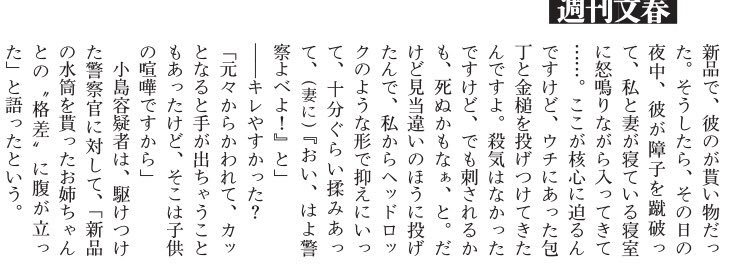 週刊文春
新品で、彼のが貰い物だっ
た。そうしたら、その日の
夜中、彼が障子を蹴破っ
て、私と妻が寝ている寝室
に怒鳴りながら入ってきて
……。ここが核心に迫るん
ですけど、ウチにあった包
丁と金槌を投げつけてきた
んですよ。殺気はなかった
ですけど、でも刺されるか
も、死ぬかもなぁ、と。だ
けど見当違いのほうに投げ
たんで、私からヘッドロッ
クのような形で抑えにいっ
て、十分ぐらい揉みあっ
て、（妻に）『おい、はよ警
察よべよ！』と」
――キレやすかった？
「元々からかわれて、カッ
となると手が出ちゃうこと
もあったけど、そこは子供
の喧嘩ですから」
小島容疑者は、駆けつけ
た警察官に対して、「新品
の水筒を貰ったお姉ちゃん
との〝格差〟に腹が立っ
た」と語ったという。